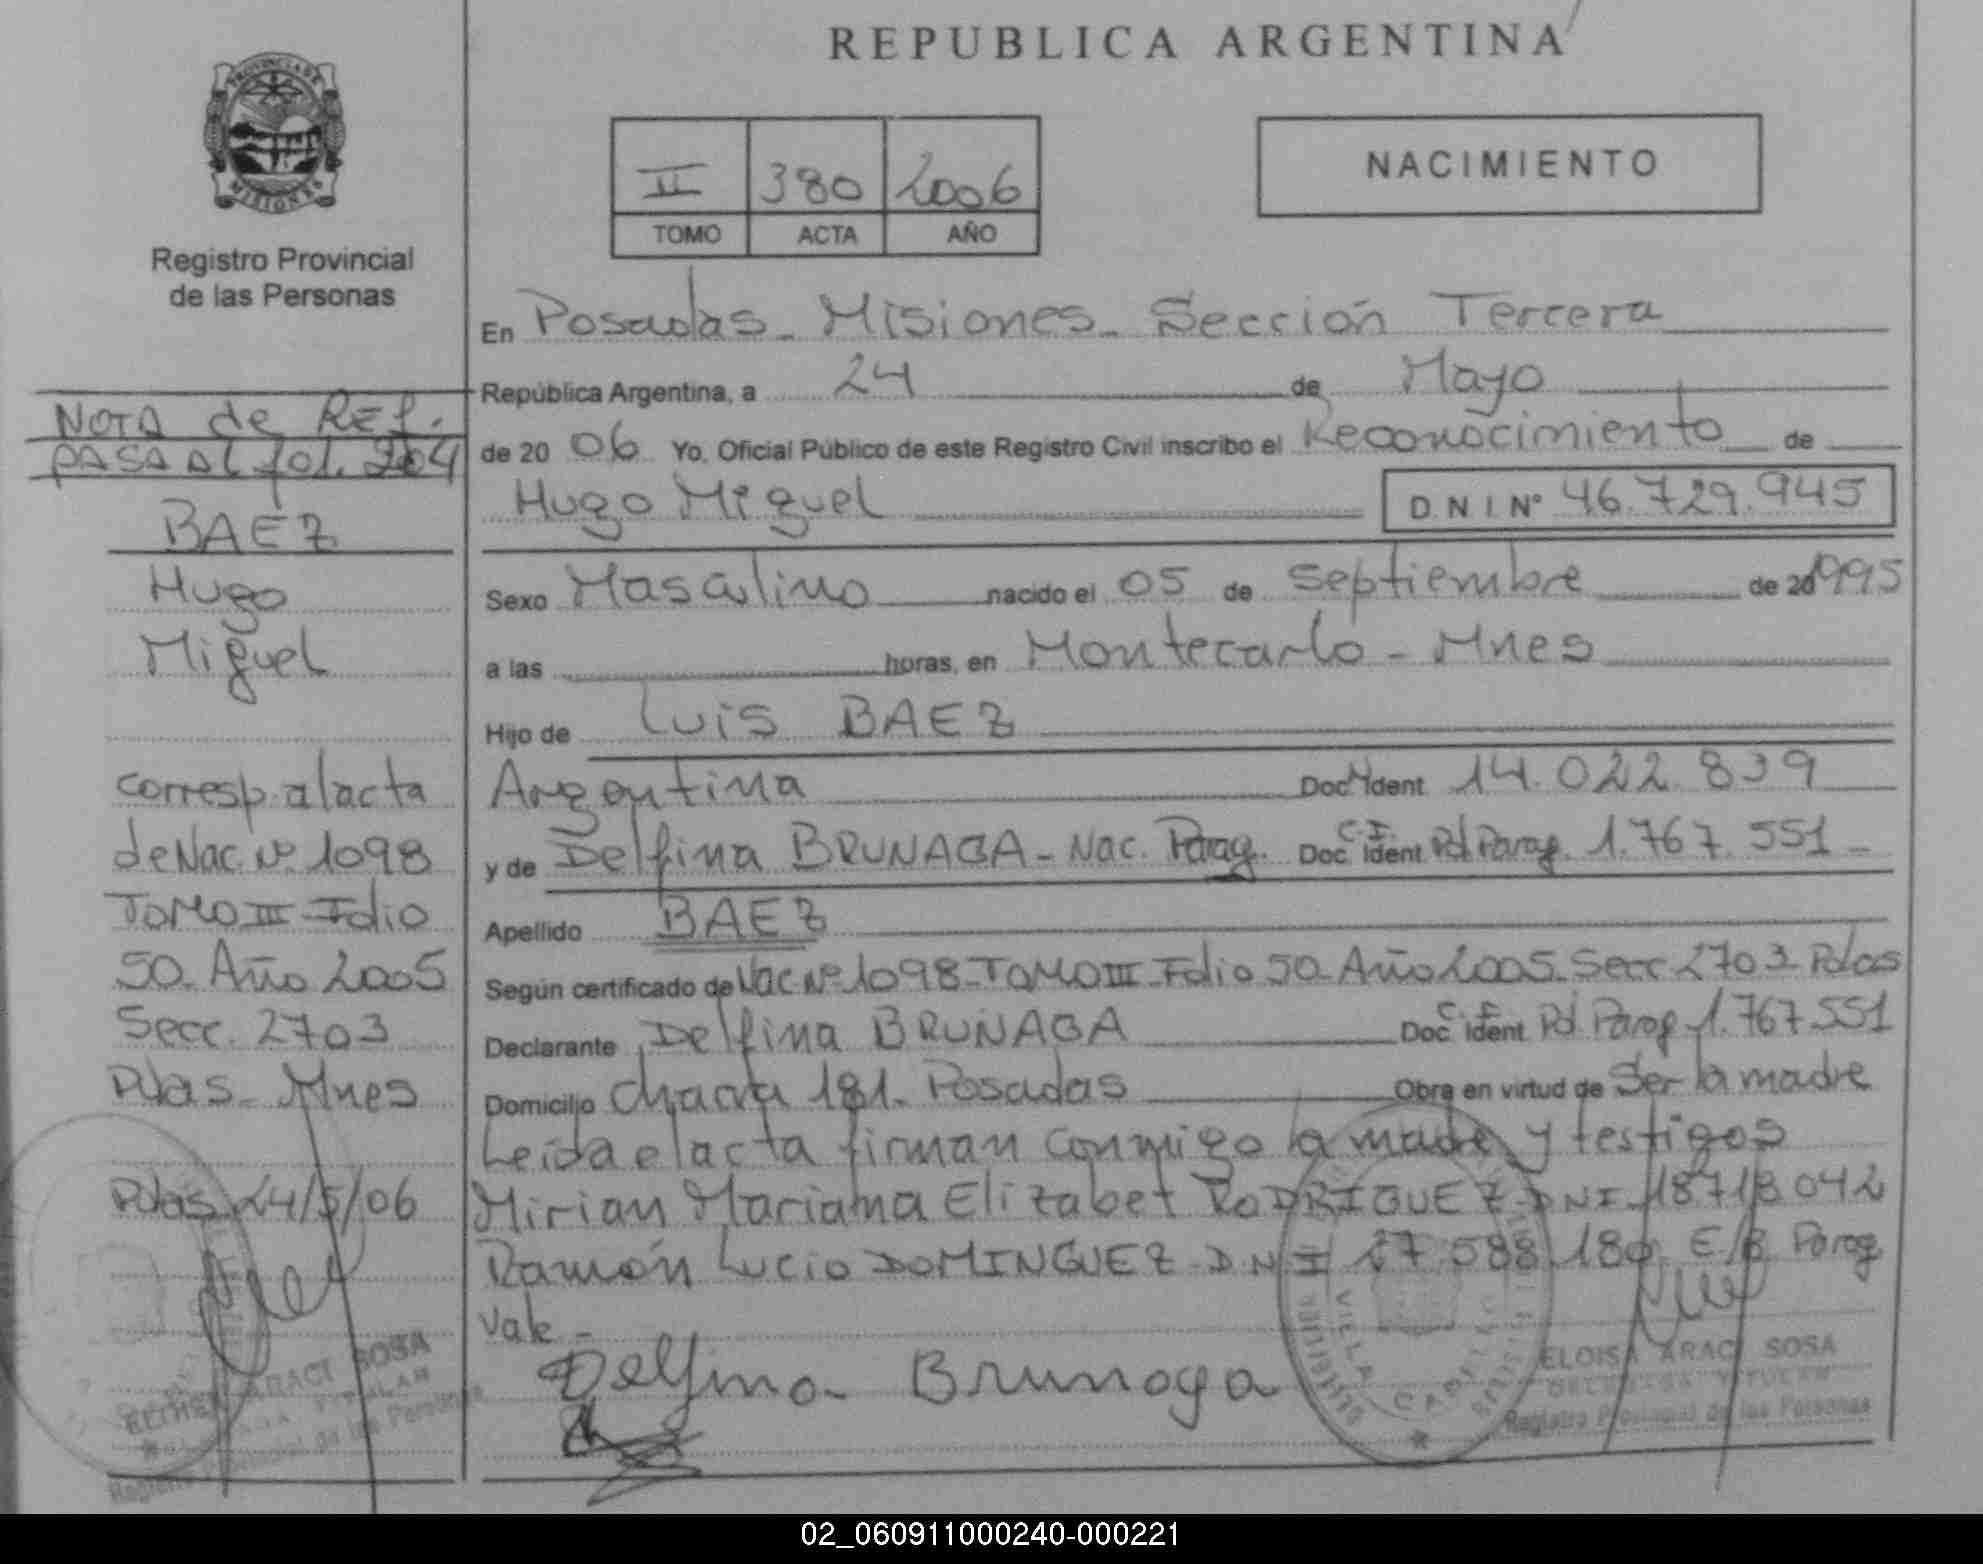 REPUBLICA ARGENTINA
PROVINCIA DE
MISIONES
Registro Provincial
de las Personas
II 380 2006
TOMO ACTA AÑO
NACIMIENTO
En Posadas - Misiones - Sección Tercera
República Argentina, a 24 de Mayo
de 20 06 Yo, Oficial Público de este Registro Civil inscribo el Reconocimiento de
Hugo Miguel D.N.I. Nº 46.729.945
Sexo Masculino nacido el 05 de Septiembre de 20 1995
a las horas, en Montecarlo - Mnes
Hijo de Luis BAEZ
Argentina Doc. Ident 14.022.839
y de Delfina BRUNAGA - Nac. Parag. Doc. C.I. Ident Pol. Parag. 1.767.551 -
Apellido BAEZ
Según certificado de Nac. Nº 1098 - TOMO III - Folio 50 - Año 2005 - Secc 2703 Pdas
Declarante Delfina BRUNAGA Doc. C.I. Ident Pol. Parag. 1.767.551
Domicilio Chacra 181 - Posadas Obra en virtud de Ser la madre
Leida el acta firman conmigo la madre y testigos
Mirian Mariana Elizabet RODRIGUEZ - DNI - 18.718.042
Ramón Lucio DOMINGUEZ - D.N.I 27.588.180 E/B Parag
Vale -
Delfina Brunaga
VILLA CABELLO
ELOISA ARACI SOSA
DELEGADA TITULAR
Registro Provincial de las Personas
NOTA de REF.
PASA AL fol. 204
BAEZ
Hugo
Miguel
corresp. al acta
de Nac. Nº 1098
TOMO III - Folio
50 - Año 2005
Secc. 2703
Pdas - Mnes
Pdas 24/5/06
ARACI SOSA
TITULAR
de las Personas
02_060911000240-000221